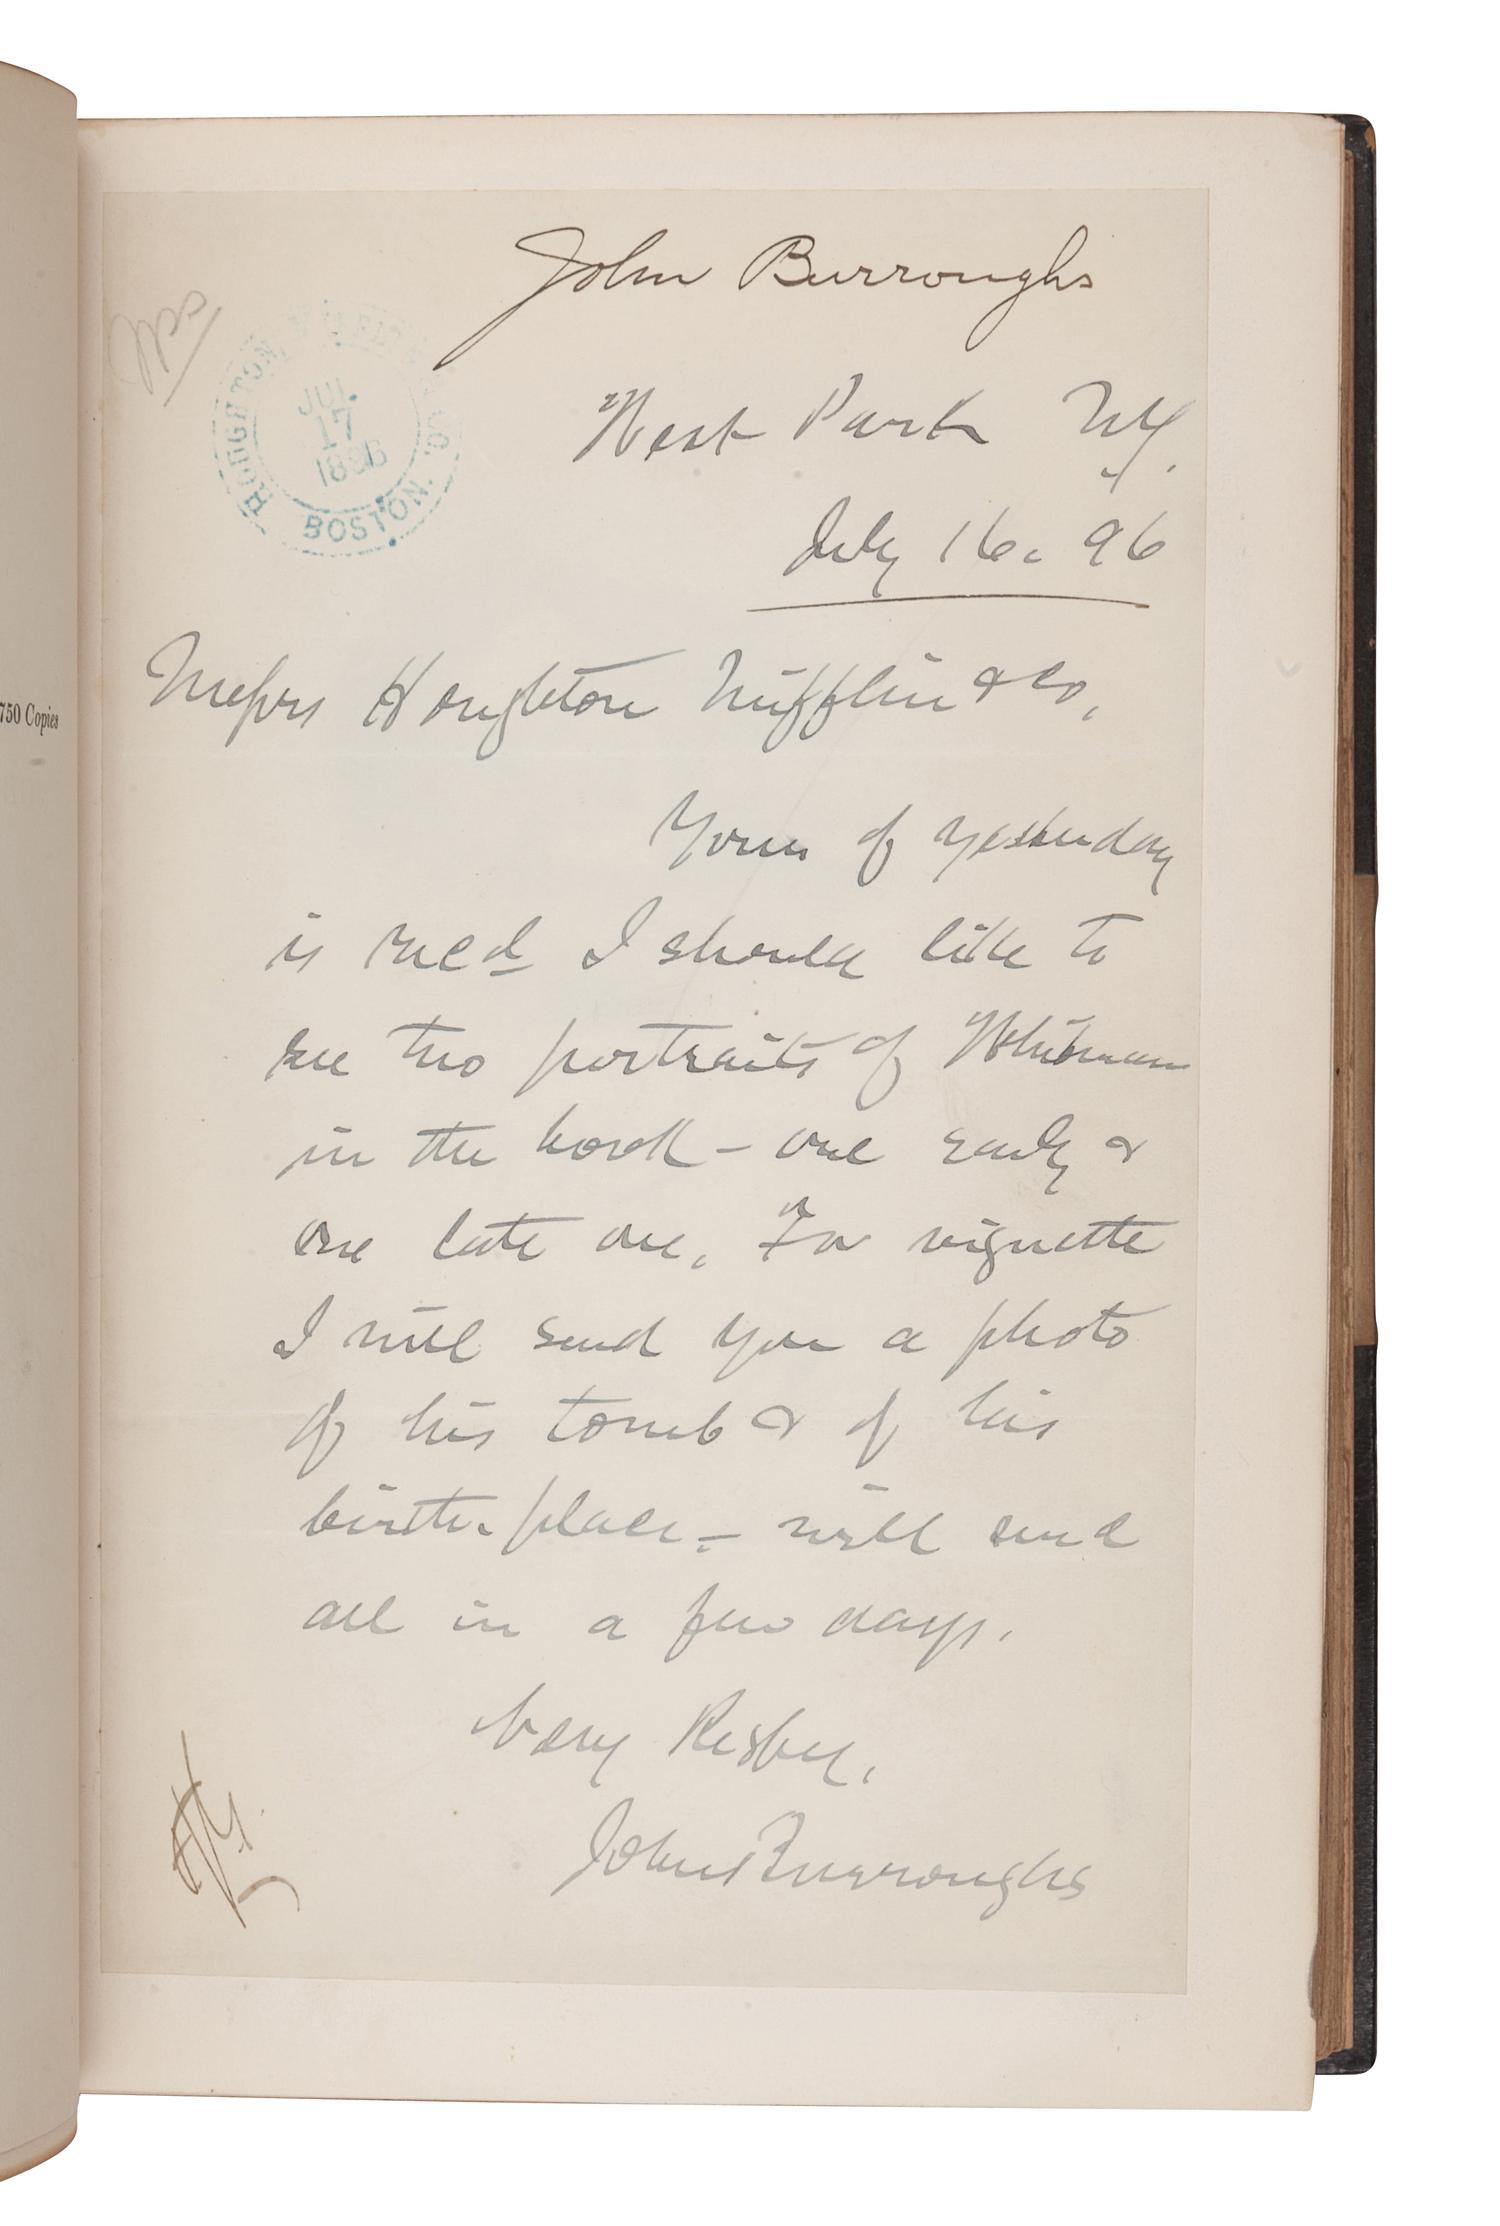 750 Copies
John Burroughs
HOUGHTON, MIFFLIN & CO.
JUL
17
1896
BOSTON.
West Park N.Y.
July 16. 96
Messrs Houghton Mifflin & Co,
Yours of yesterday
is recd I should like to
see two portraits of Whitman
in the book - one early &
one late one. For vignette
I will send you a photo
of his tomb & of his
birth-place - will send
all in a few days.
Very Resfy,
John Burroughs